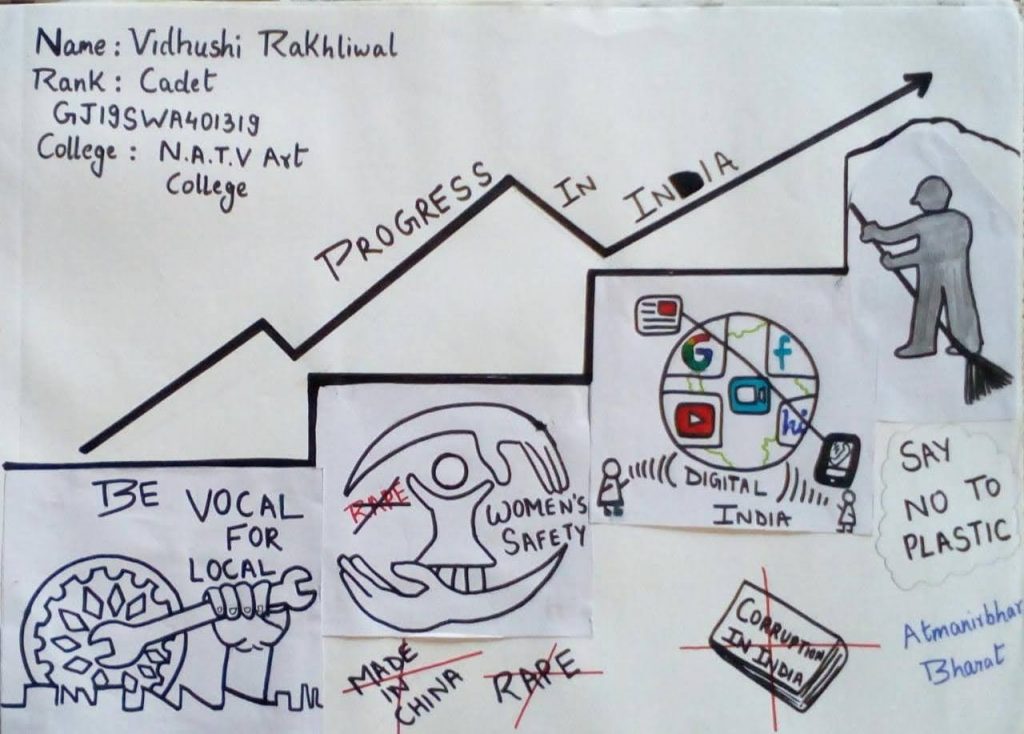 Name : Vidhushi Rakhliwal
Rank : Cadet
GJ19SWA401319
College : N.A.T.V Art
College
PROGRESS IN INDIA
BE VOCAL
FOR
LOCAL
RAPE
WOMEN'S
SAFETY
G
f
hi
DIGITAL
INDIA
SAY
NO TO
PLASTIC
MADE
IN
CHINA
RAPE
CORRUPTION
IN INDIA
Atmanirbhar
Bharat